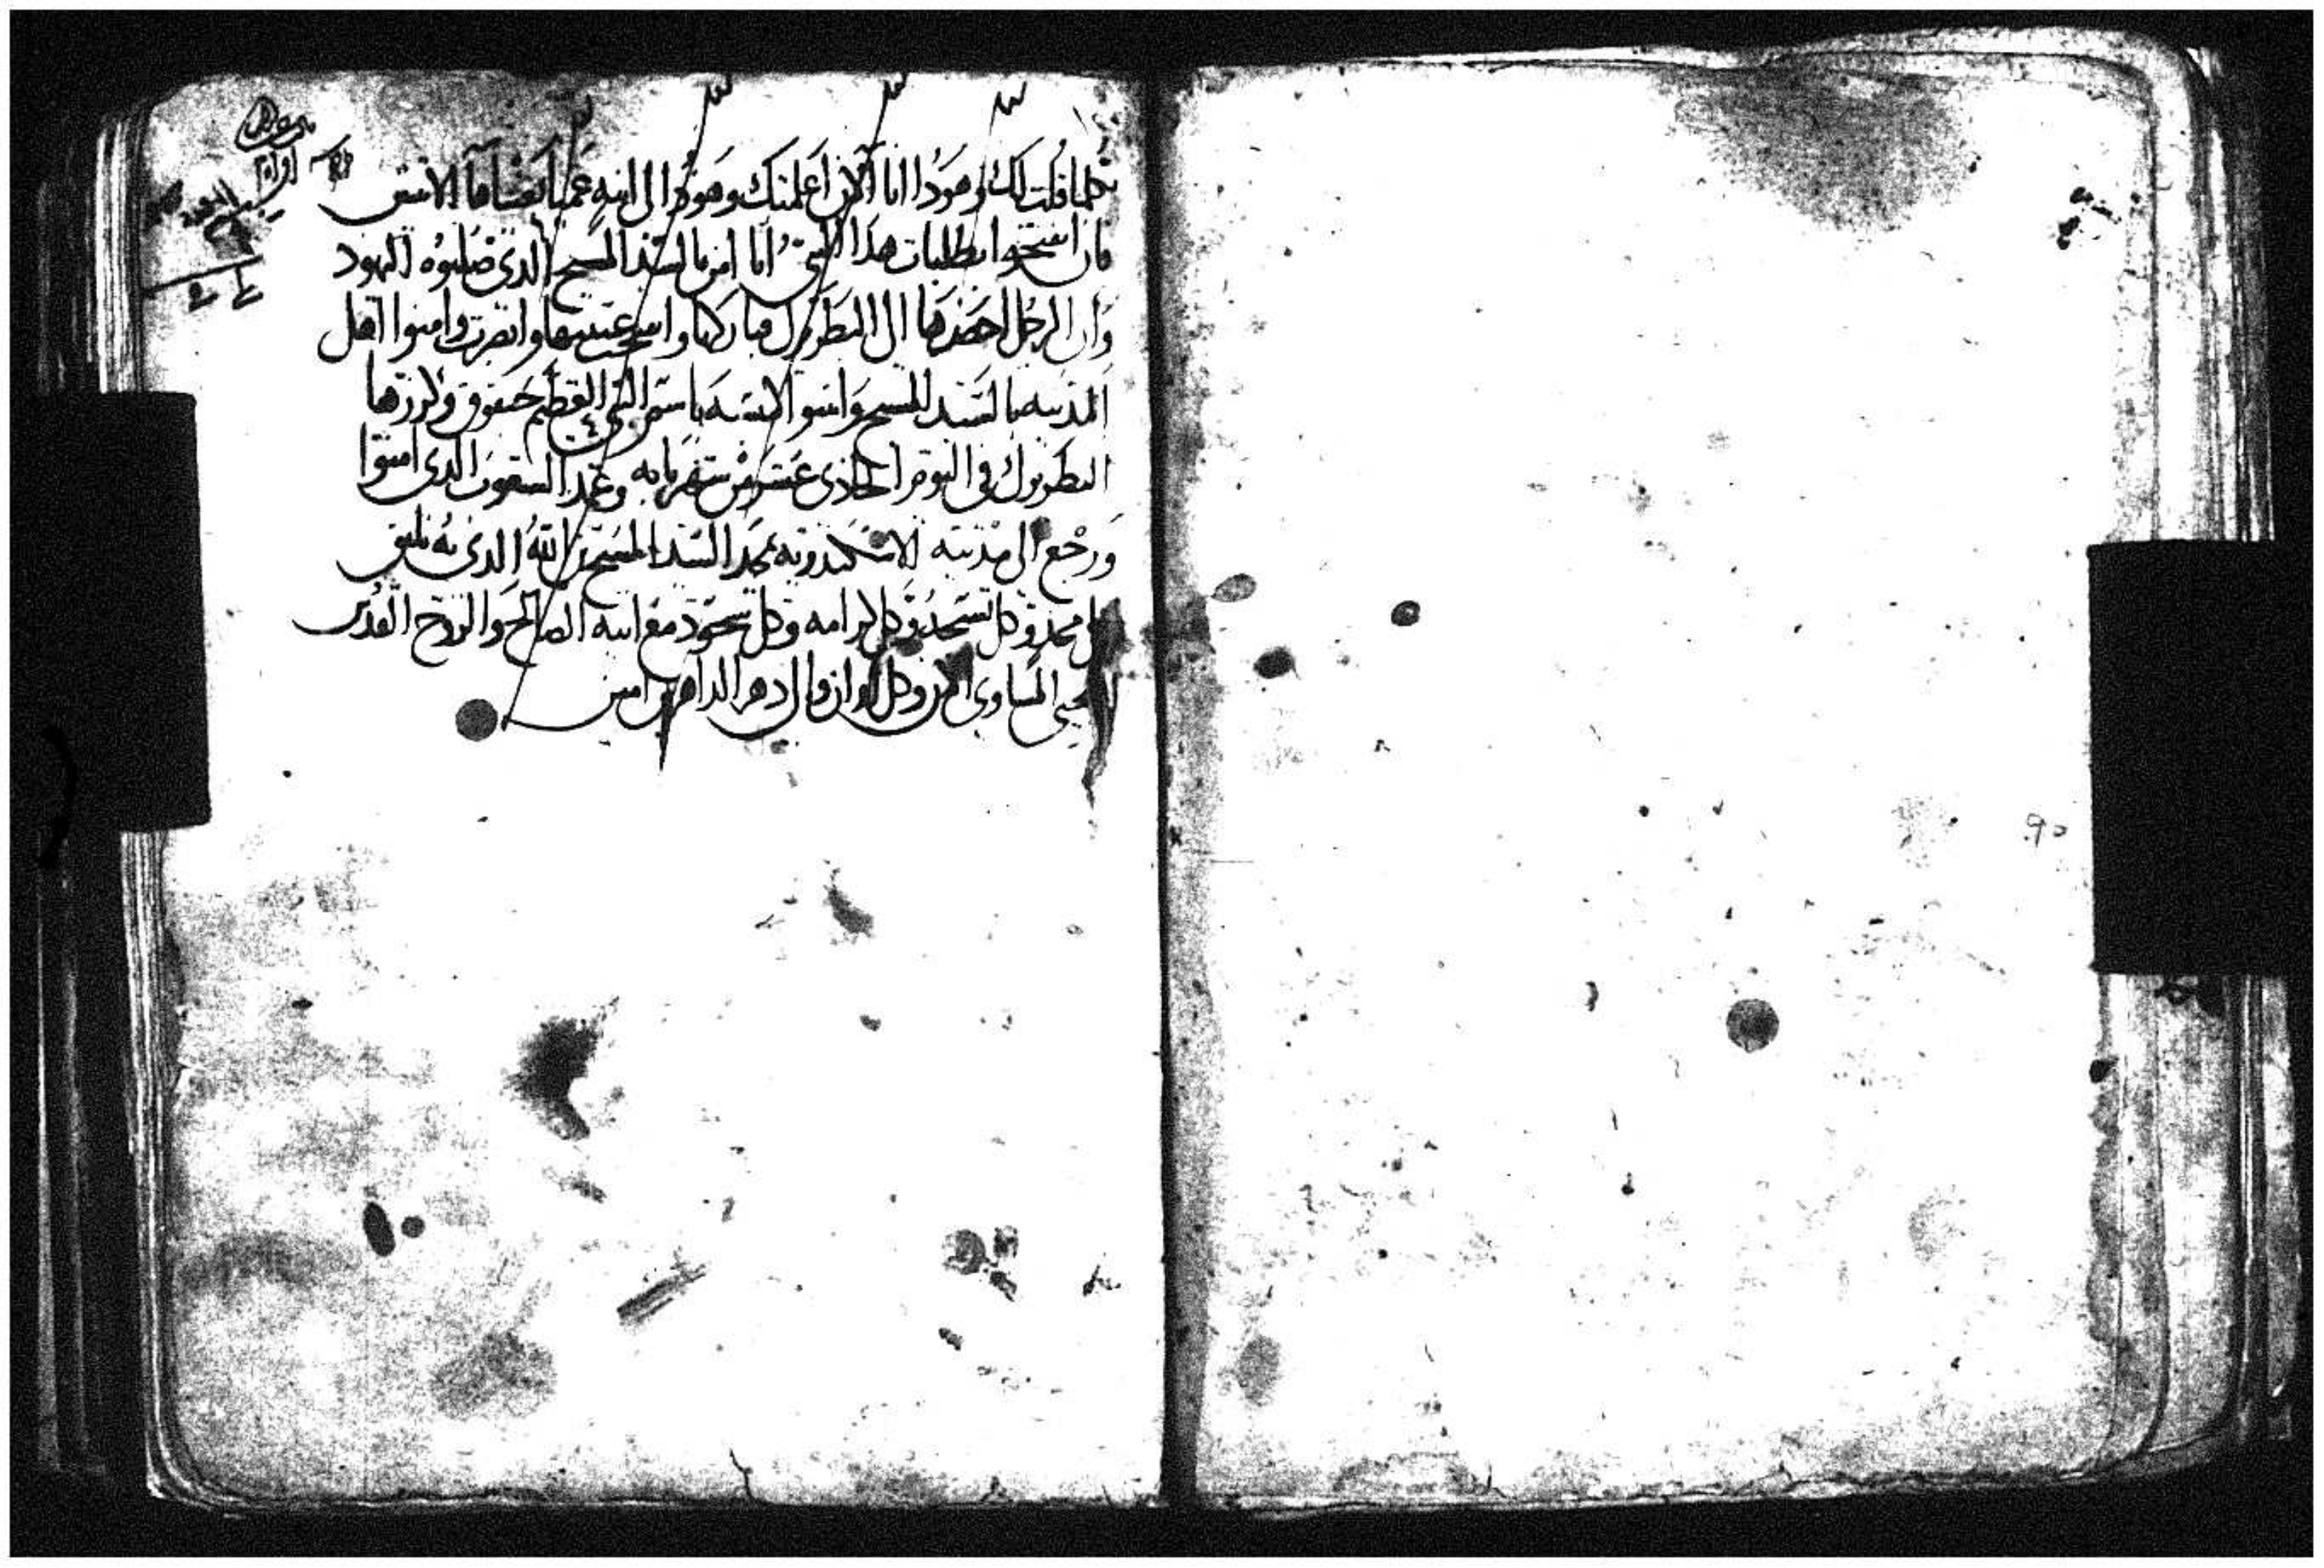 كلما قلت لك وهودا انا الان اعلمتك وهوذا لى ابنه عميا
فان انفتحوا بطلبات هدا النبى انا اومن بالسيد المسيح الدى صلبوه اليهود
وان الرجل احضرها الى البطريرك فباركها وانفتحت عينيها وابصرت وامنوا اهل
المدينه بالسيد المسيح وابنوا البيعه باسم النبى العظيم حبقوق وكرزها
البطريرك فى اليوم الحادى عشر من شهر بابه وعمد الشعوب الدى امنوا
ورجع الى مدينته الاسكندريه بمجد السيد المسيح الله الدى به يليق
كل مجد وكل تسبحه وكل كرامه وكل سجود مع ابيه الصالح والروح القدس
المحيى المساوى الان وكل اوان والى دهر الداهرين امين